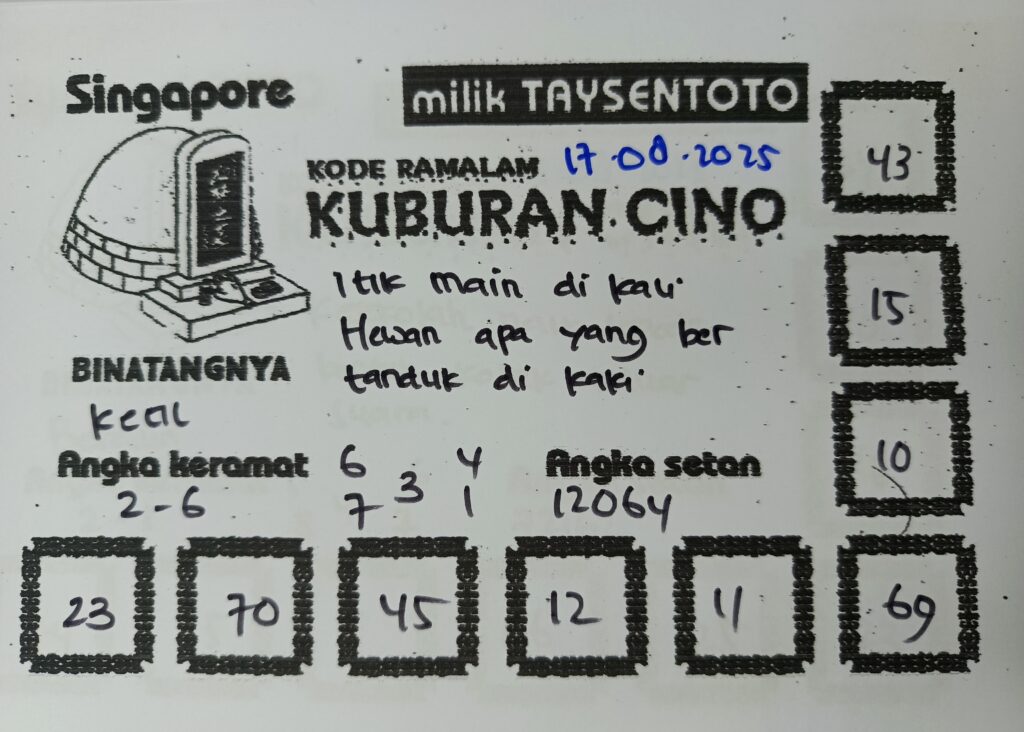 Singapore
milik TAYSENTOTO
KODE RAMALAM 17.08.2025
KUBURAN CINO
Itik main di kali
Hewan apa yang ber
tanduk di kaki
BINATANGNYA
kecil
Angka keramat
2-6
6 4
3
7 1
Angka setan
12064
43
15
10
23 70 45 12 11 69